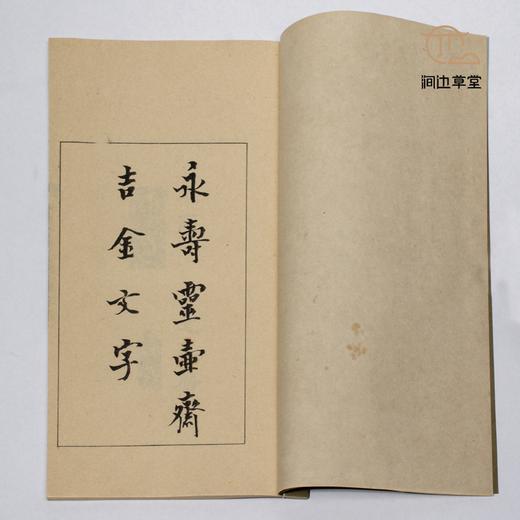 永壽靈壷齋
吉金文字
涧边草堂